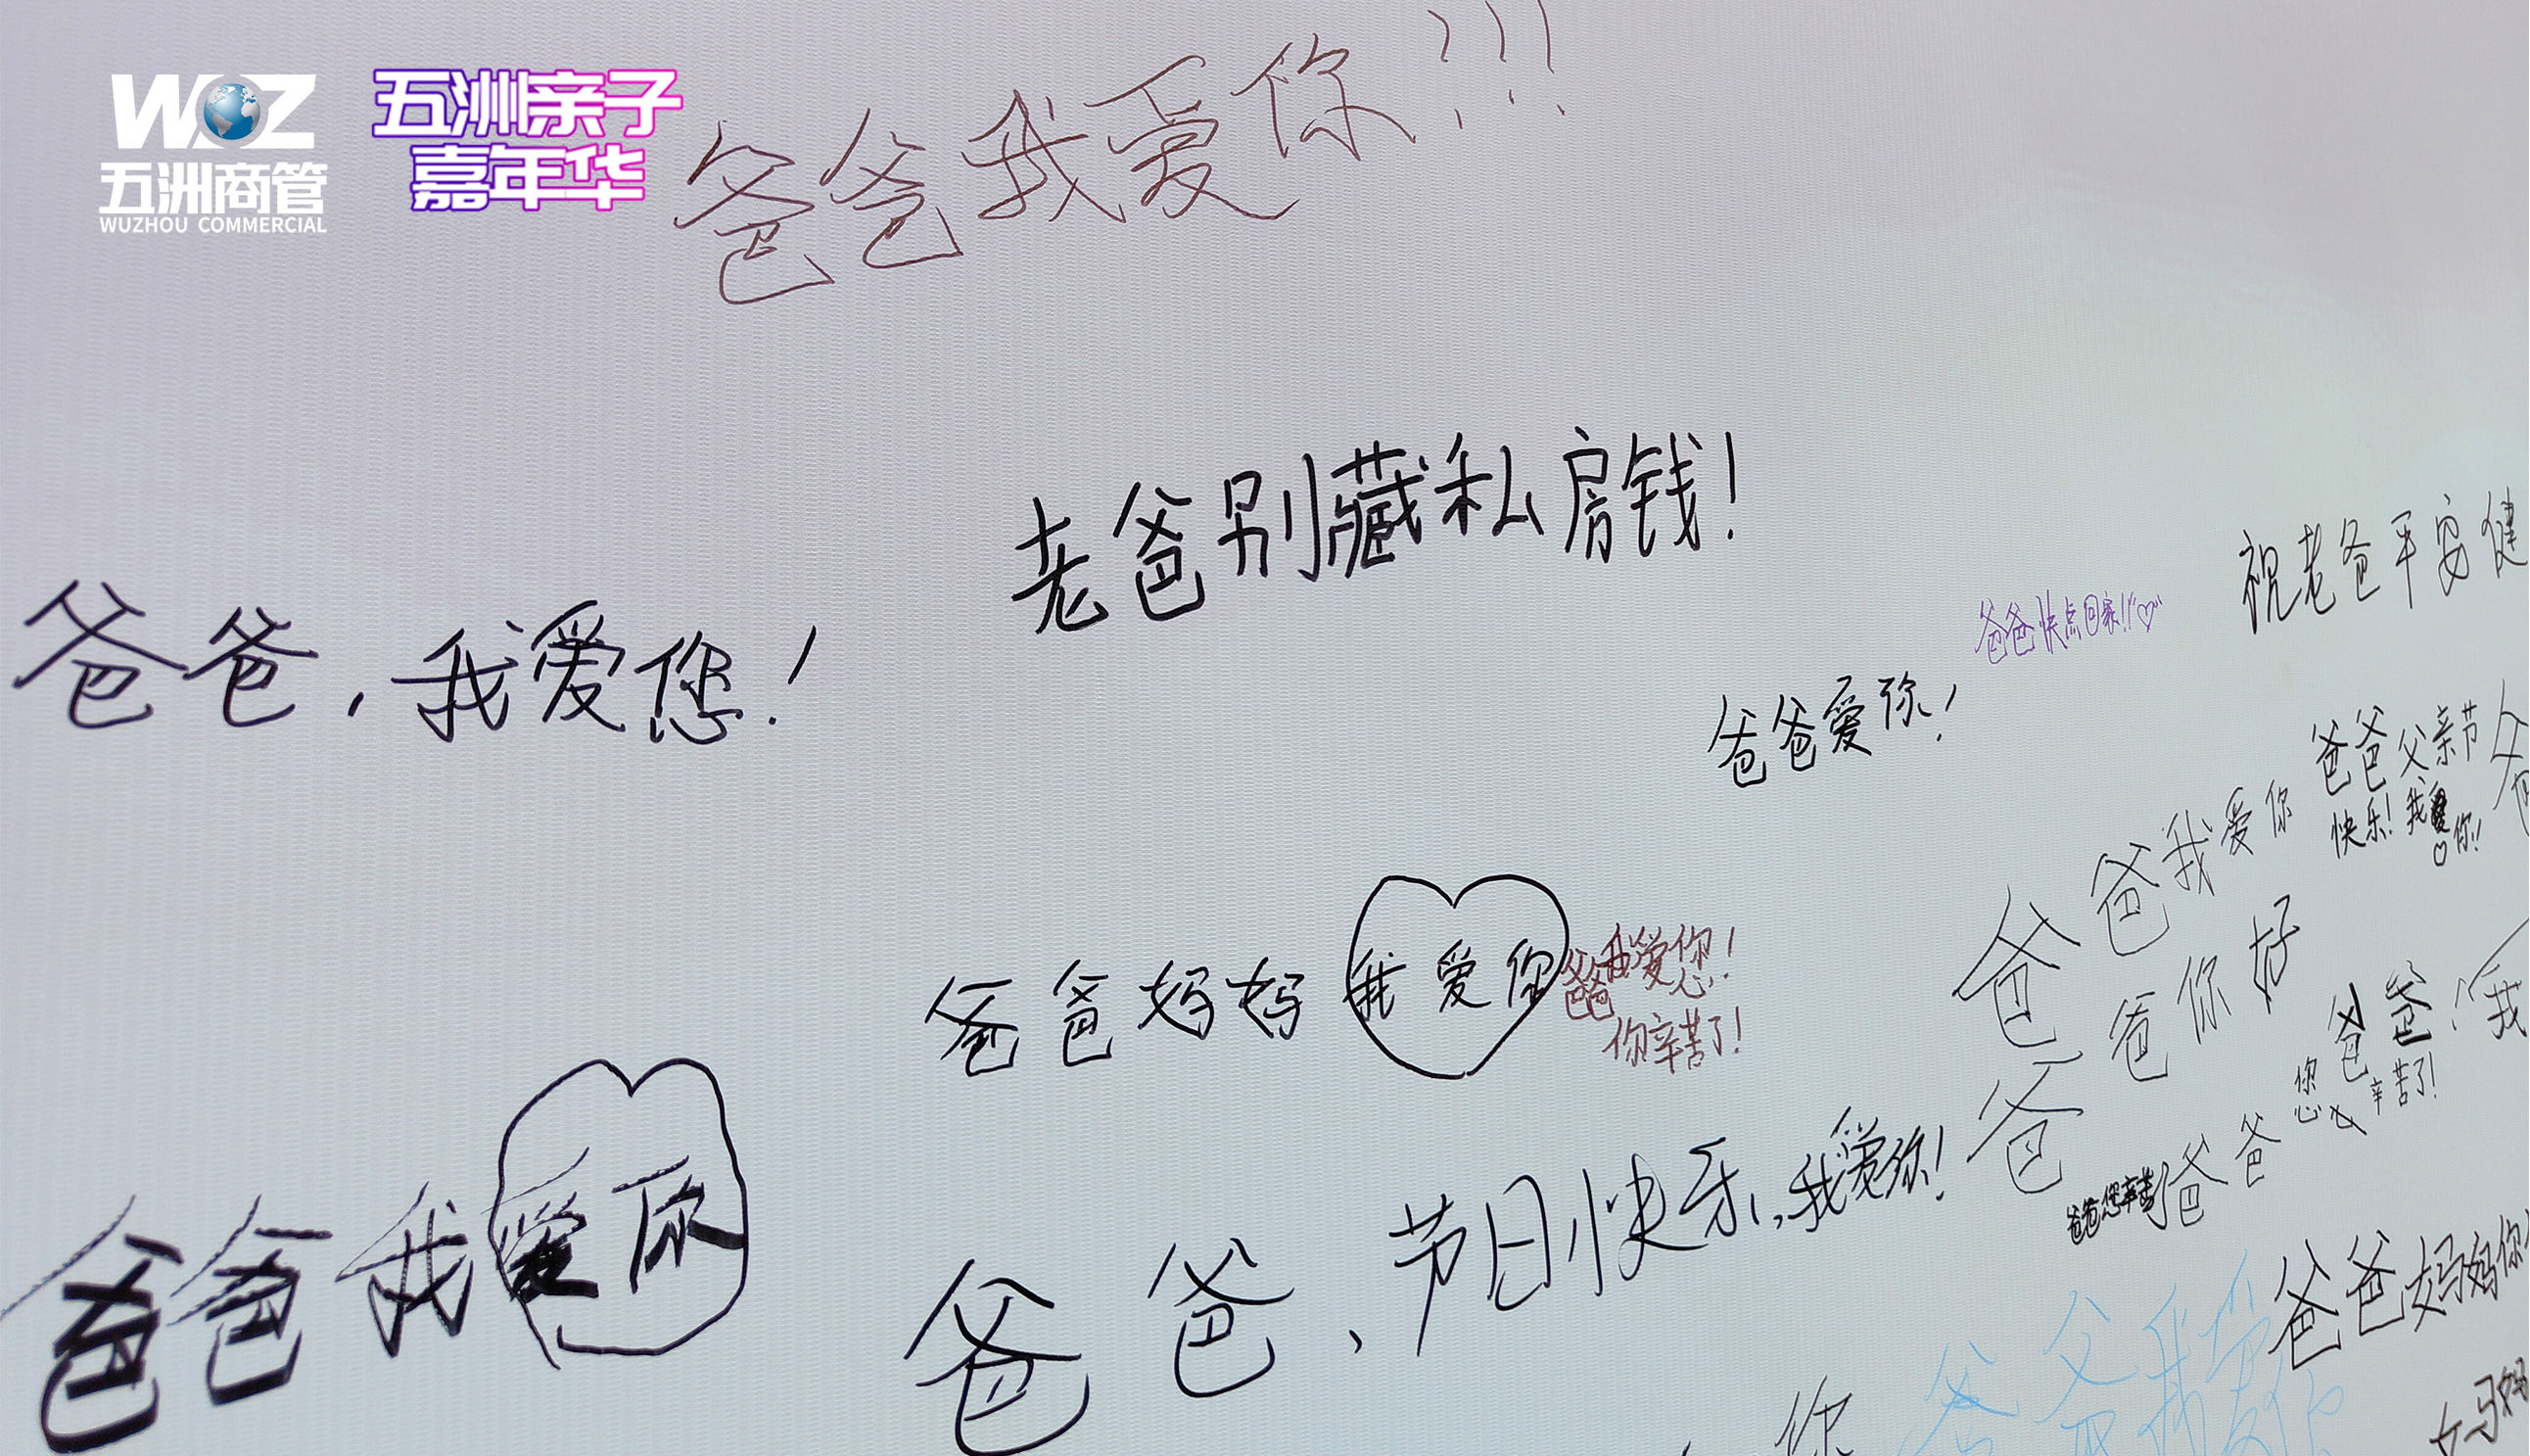 WOZ
五洲商管
WUZHOU COMMERCIAL
五洲亲子
嘉年华
爸爸我爱你!!!
老爸别藏私房钱!
爸爸，我爱您!
祝老爸平安健
爸爸快点回家!!
爸爸爱你!
爸爸父亲节
快乐!我爱你!!
爸爸我爱你
爸爸妈妈我爱你
爸爸我爱您!
你辛苦了!
爸你好
爸爸!我
您辛苦了!
爸爸我爱你
爸爸，节日快乐，我爱你!
爸爸您辛苦
爸爸
爸爸妈妈你
爸爸我爱你
你
妈